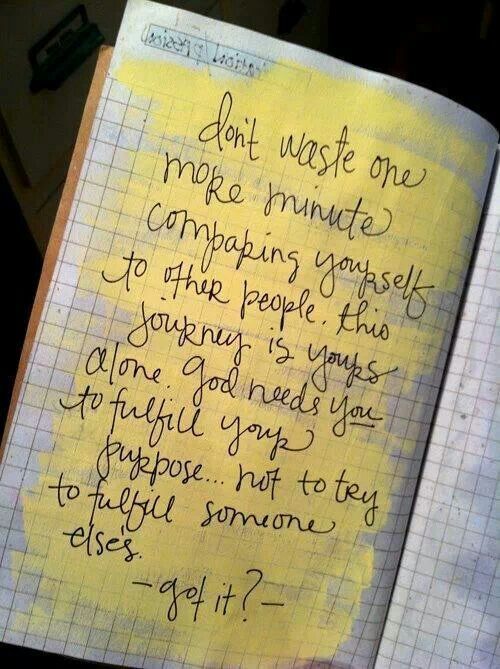 don't waste one
more minute
comparing yourself
to other people. this
journey is yours
alone. God needs you
to fulfill your
purpose... not to try
to fulfill someone
else's.
-got it?-